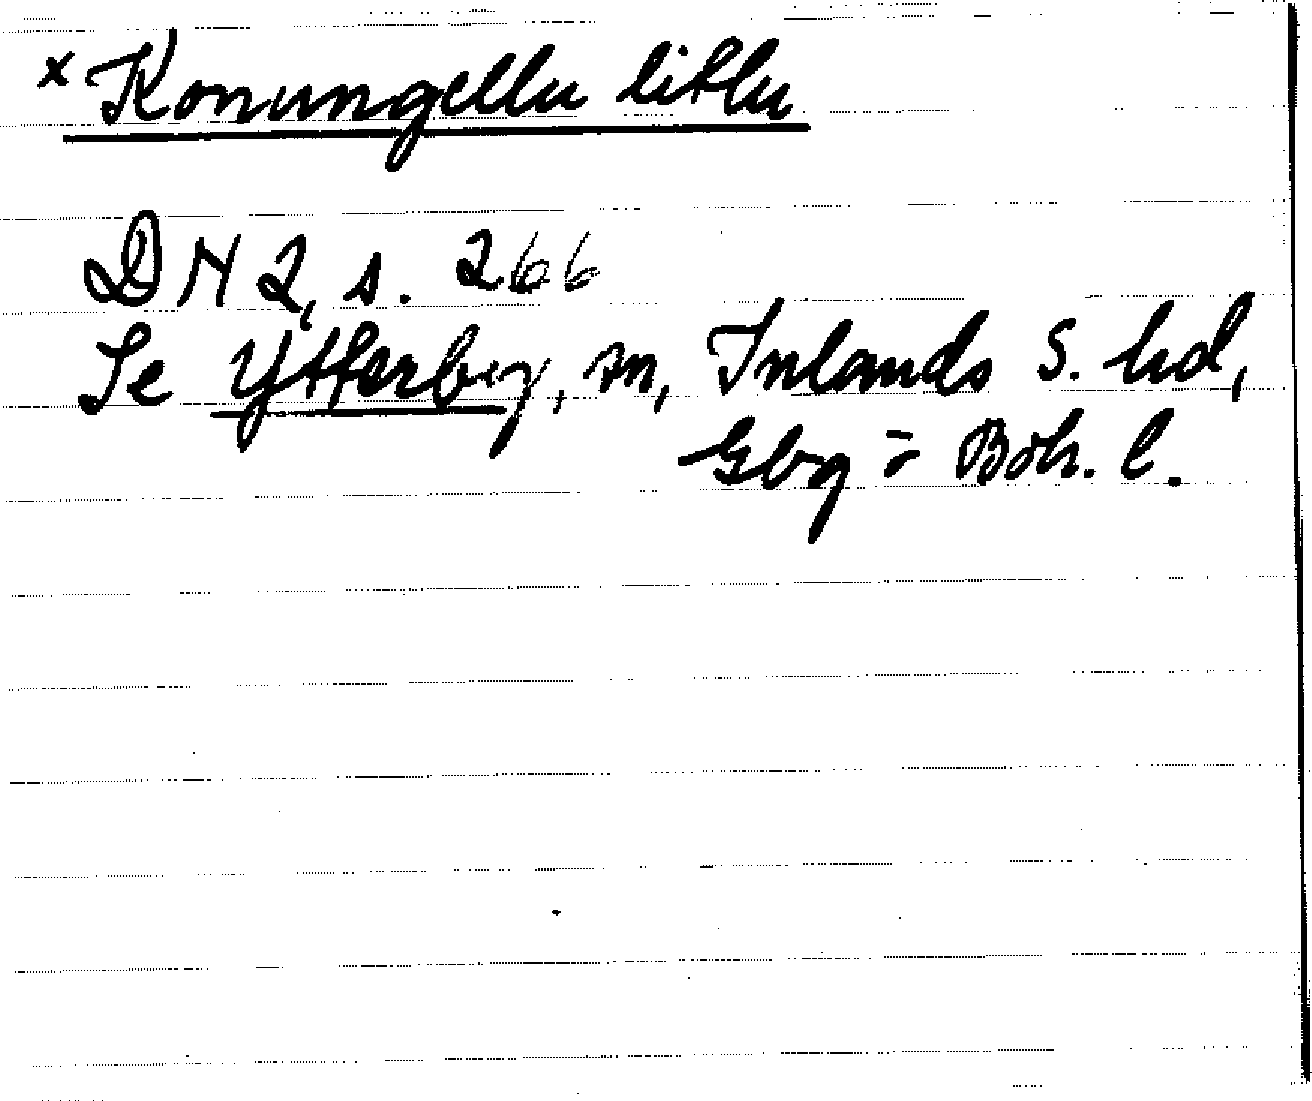 x Konungellu litlu
DN 2, s. 266
Se Ytterby, sn, Inlands S. hd,
Gbg o Boh. l.